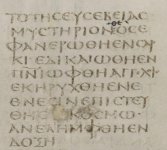 ΤΟΤΗCΕΥCΕΒΕΙΑC
θε
ΜΥCΤΗΡΙΟΝΟCΕ
ΦΑΝΕΡΩΘΗΕΝCΑΡ
ΚΙΕΔΙΚΑΙΩΘΗΕΝ
ΠΝΙΩΦΘΗΑΓΓΕΛΟΙC
ΕΚΗΡΥΧΘΗΕΝΕ
ΘΝΕCΙΝΕΠΙCΤΕΥ
ΘΗΕΝΚΟCΜΩ
ΑΝΕΛΗΜΦΘΗΕΝ
ΔΟΞΗ